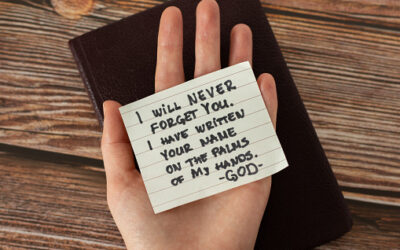 I WILL NEVER
FORGET YOU.
I HAVE WRITTEN
YOUR NAME
ON THE PALMS
OF MY HANDS.
-GOD-